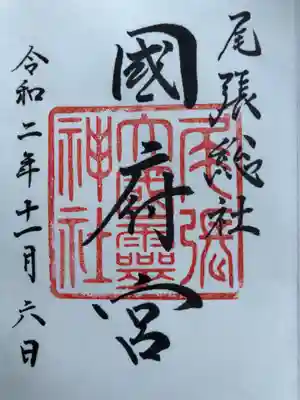 尾張総社
國府宮
尾張大國霊神社
令和二年十一月六日